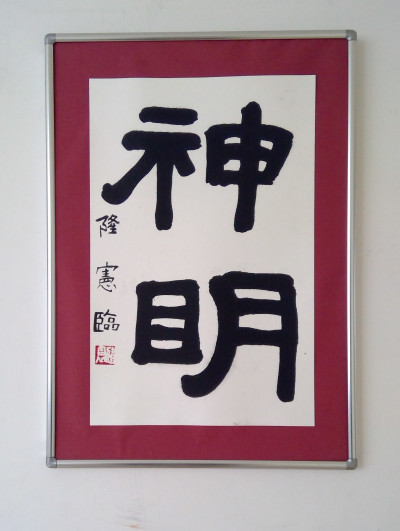 神明
隆憲臨